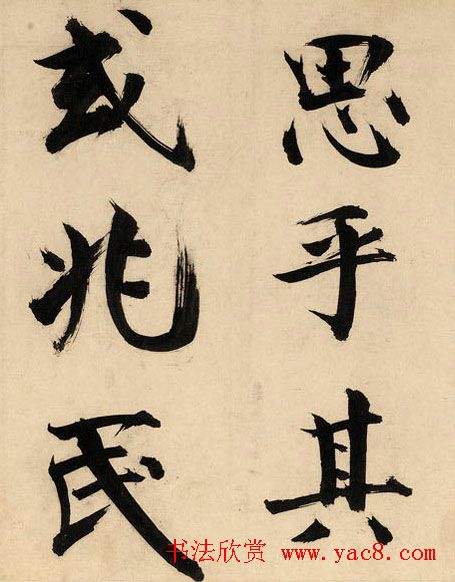 思乎其
或兆民
书法欣赏 www.yac8.com